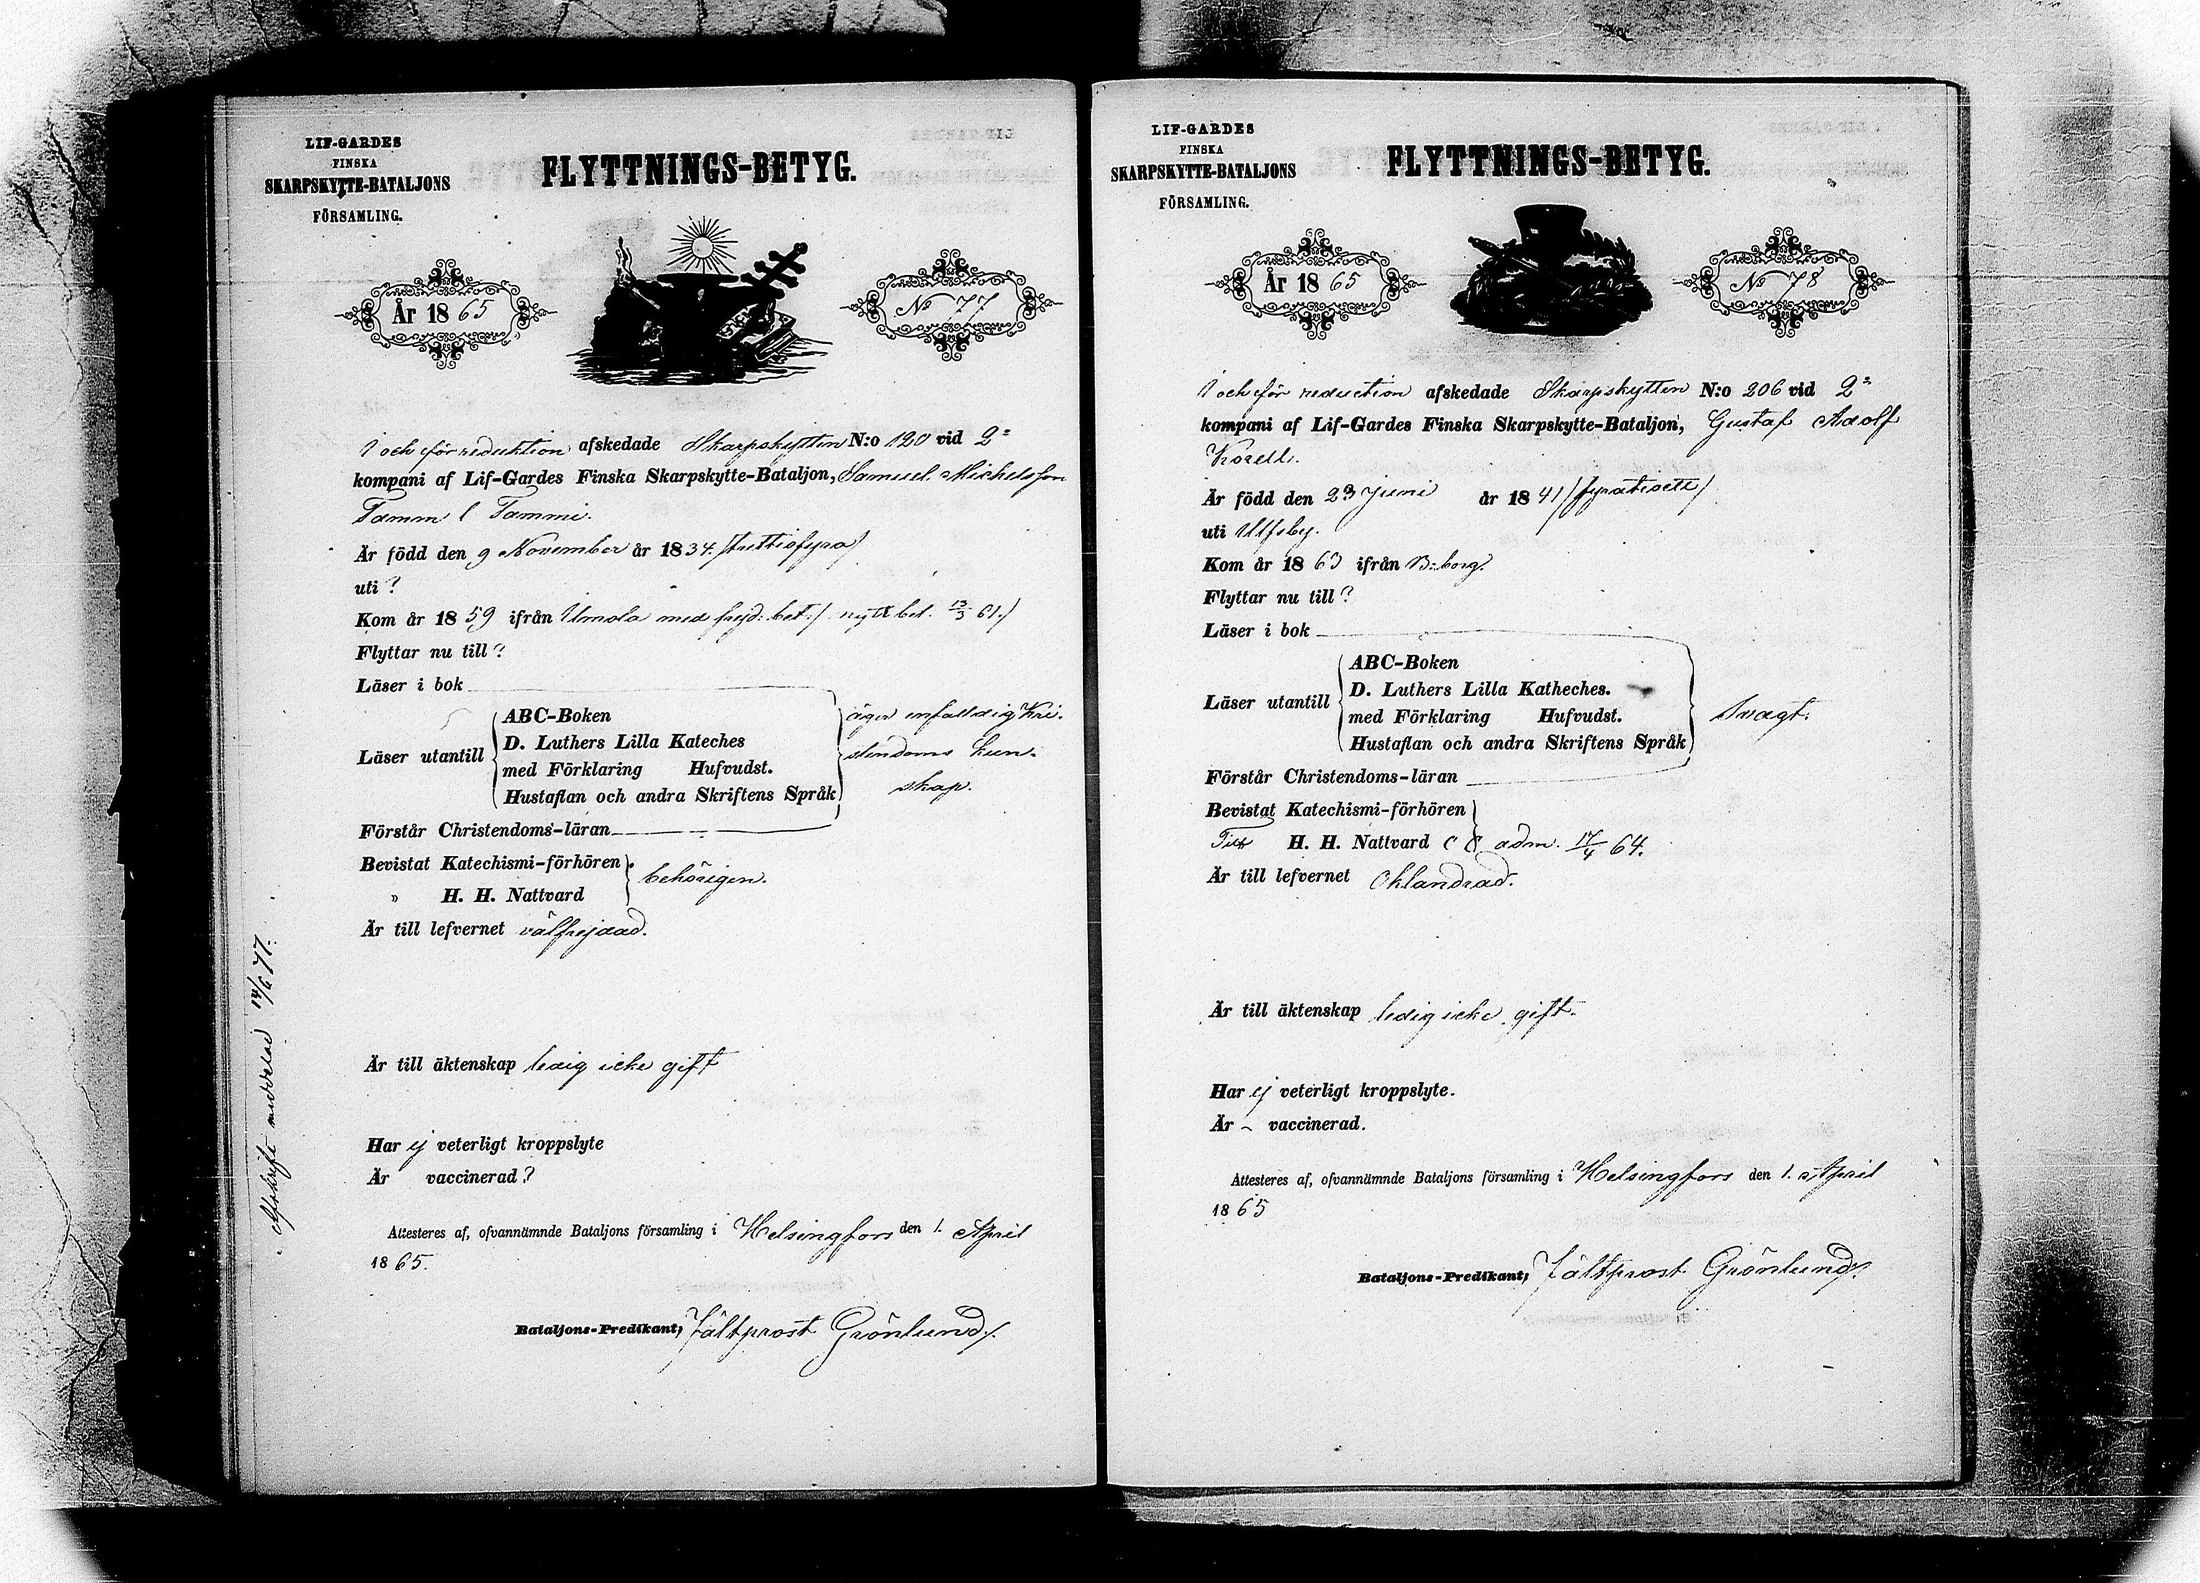 LIF-GARDES
FINSKA
SKARPSKYTTE-BATALJONS
FÖRSAMLING.
FLYTTNINGS-BETYG.
År 18 65
No 77
I och för reduktion afskedade Skarpskytten N:o 120 vid 2:
kompani af Lif-Gardes Finska Skarpskytte-Bataljon, Samuel Michelsson
Tamm l Tammi.
Är född den 9 November år 1834. /trettiofyra/
uti ?
Kom år 18 59 ifrån Urnola med frejd: bet:/ nytt bet. 13/3 61./
Flyttar nu till ?
Läser i bok
Läser utantill
ABC-Boken
D. Luthers Lilla Kateches
med Förklaring Hufvudst.
Hustaflan och andra Skriftens Språk
äger enfaldig Kri-
stendoms kun-
skap.
Förstår Christendoms-läran
Bevistat Katechismi-förhören
" H. H. Nattvard
behörigen.
Är till lefvernet välfrejdad.
Är till äktenskap ledig icke gift
Har ej veterligt kroppslyte
Är vaccinerad ?
Attesteres af, ofvannämnde Bataljons församling i Helsingfors den 1. April
18 65.
Bataljons-Predikant, Fältprost Grönlund/.
Afskrift meddelad 14/6 77.
LIF-GARDES
FINSKA
SKARPSKYTTE-BATALJONS
FÖRSAMLING.
FLYTTNINGS-BETYG.
År 18 65
No 78
I och för reduction afskedade Skarpskytten N:o 206 vid 2:
kompani af Lif-Gardes Finska Skarpskytte-Bataljon, Gustaf Adolf
Korell.
Är född den 23 Juni år 18 41 /fyratioett/
uti Ulfsby.
Kom år 18 63 ifrån B:borg.
Flyttar nu till ?
Läser i bok
Läser utantill
ABC-Boken
D. Luthers Lilla Katheches.
med Förklaring Hufvudst.
Hustaflan och andra Skriftens Språk
Svagt.
Förstår Christendoms-läran
Bevistat Katechismi-förhören
Till H. H. Nattvard adm. 17/4 64.
Är till lefvernet Oklandrad.
Är till äktenskap ledig icke gift.
Har ej veterligt kroppslyte.
Är ~ vaccinerad.
Attesteres af, ofvannämnde Bataljons församling i Helsingfors den 1. April
18 65
Bataljons-Predikant, Fältprost Grönlund/.